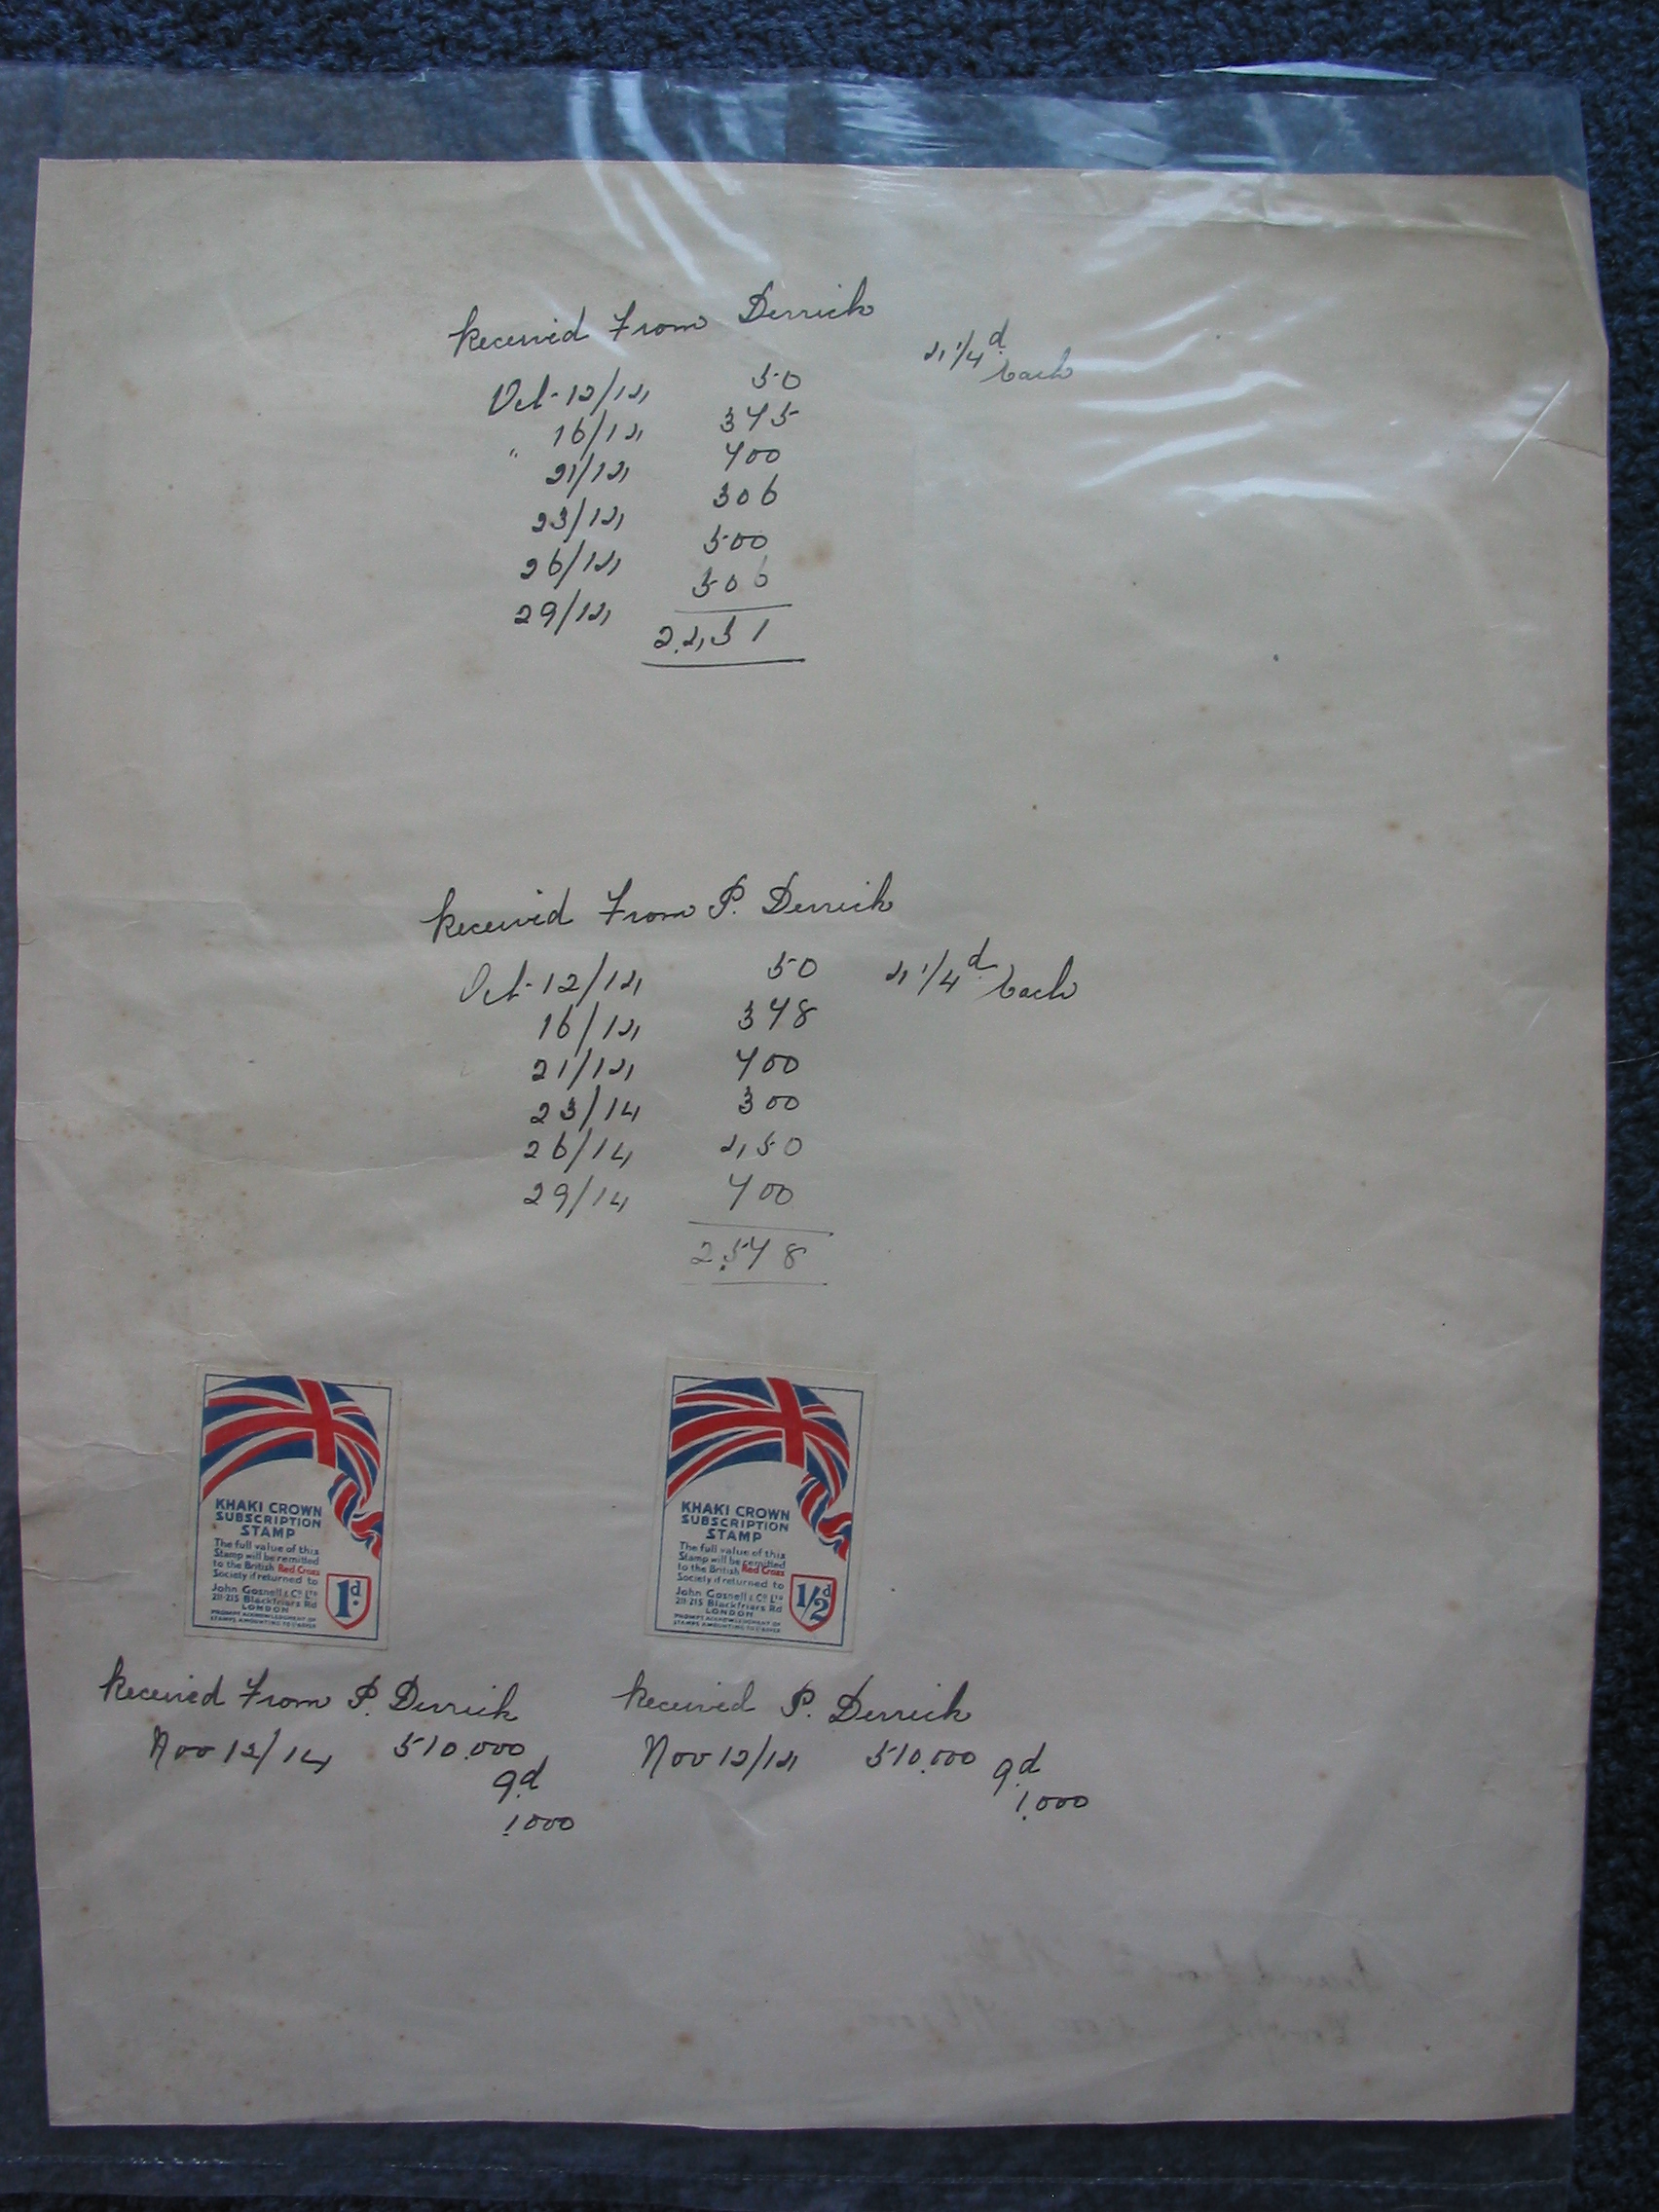 Received From Derrick
4 1/4d Each
Oct. 12/14 50
" 16/14 375
21/14 700
23/14 306
26/14 500
29/14 506
2.431
Received From P. Derrick
Oct. 12/14 50 4 1/4d Each
16/14 378
21/14 700
23/14 300
26/14 450
29/14 700
2.578
KHAKI CROWN
SUBSCRIPTION
STAMP
The full value of this
Stamp will be remitted
to the British Red Cross
Society if returned to
John Gosnell & Co Ltd
211-215 Blackfriars Rd
LONDON
PROMPT ACKNOWLEDGMENT OF
STAMPS AMOUNTING TO 1/- & OVER
1d.
KHAKI CROWN
SUBSCRIPTION
STAMP
The full value of this
Stamp will be remitted
to the British Red Cross
Society if returned to
John Gosnell & Co Ltd
211-215 Blackfriars Rd
LONDON
PROMPT ACKNOWLEDGMENT OF
STAMPS AMOUNTING TO 1/- & OVER
1/2d
Received From P. Derrick
Nov 12/14 510.000
9.d
1.000
Received P. Derrick
Nov 12/14 510.000 9.d
1.000